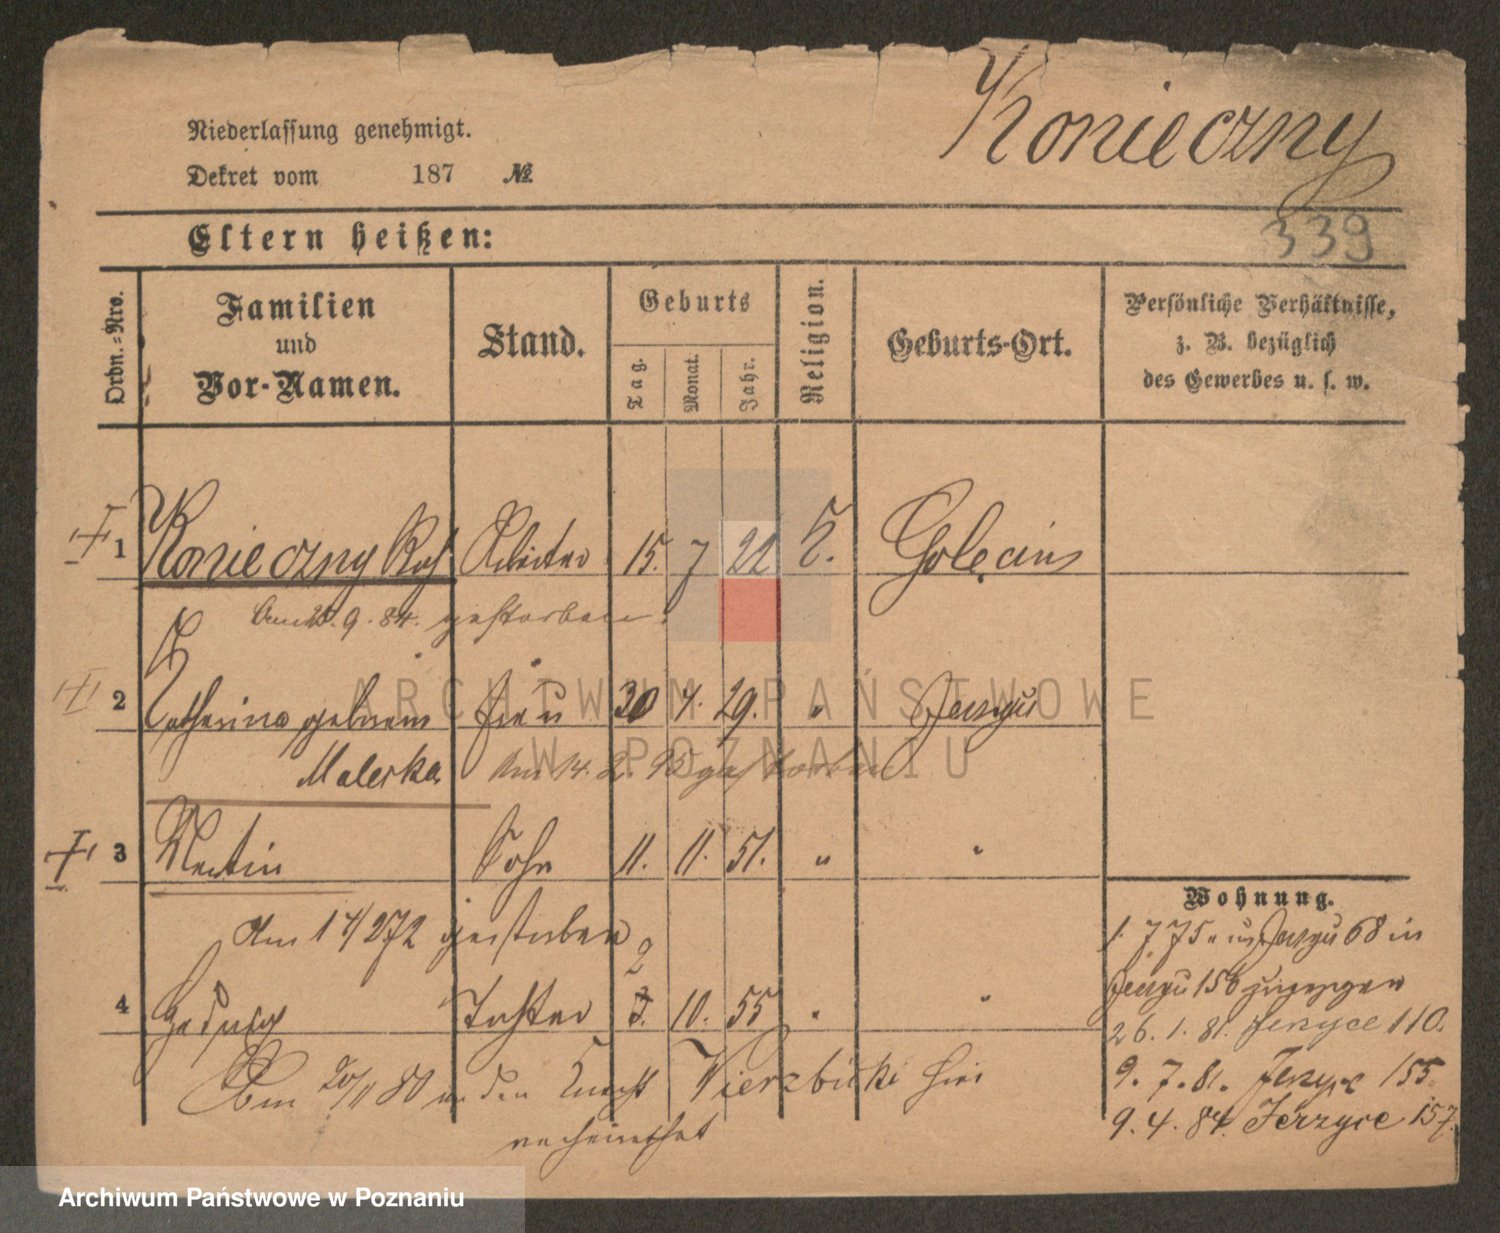 Konieczny
Niederlassung genehmigt.
Dekret vom 187 №
339
Eltern heißen:
Ordn.-Nro.
Familien
und
Vor-Namen.
Stand.
Geburts
Tag.
Monat.
Jahr.
Religion.
Geburts-Ort.
Persönliche Verhältnisse,
z. B. bezüglich
des Gewerbes u. s. w.
1 Konieczny Arbeiter 15. 7 22 K. Golęcin
9. 84. gestorben
2 Catharina geborene Frau 30 4. 29. " Jerzyce
Maleska Am 14. 2. 95 gestorben
3 Martin Sohn 11. 11. 51. " "
Am 14/2 72 gestorben
2
4 Hedwig Tochter 3. 10. 55 " "
Am 20/11 80 an den Knecht Wierzbicki hier
verheirathet
Wohnung.
1. 7 75 aus Jerzyce 68 in
Jerzyce 156 gezogen
26. 1. 81. Jerzyce 110.
9. 7. 81. Jerzyce 155
9. 4. 84. Jerzyce 157.
ARCHIWUM PAŃSTWOWE
W POZNANIU
Archiwum Państwowe w Poznaniu